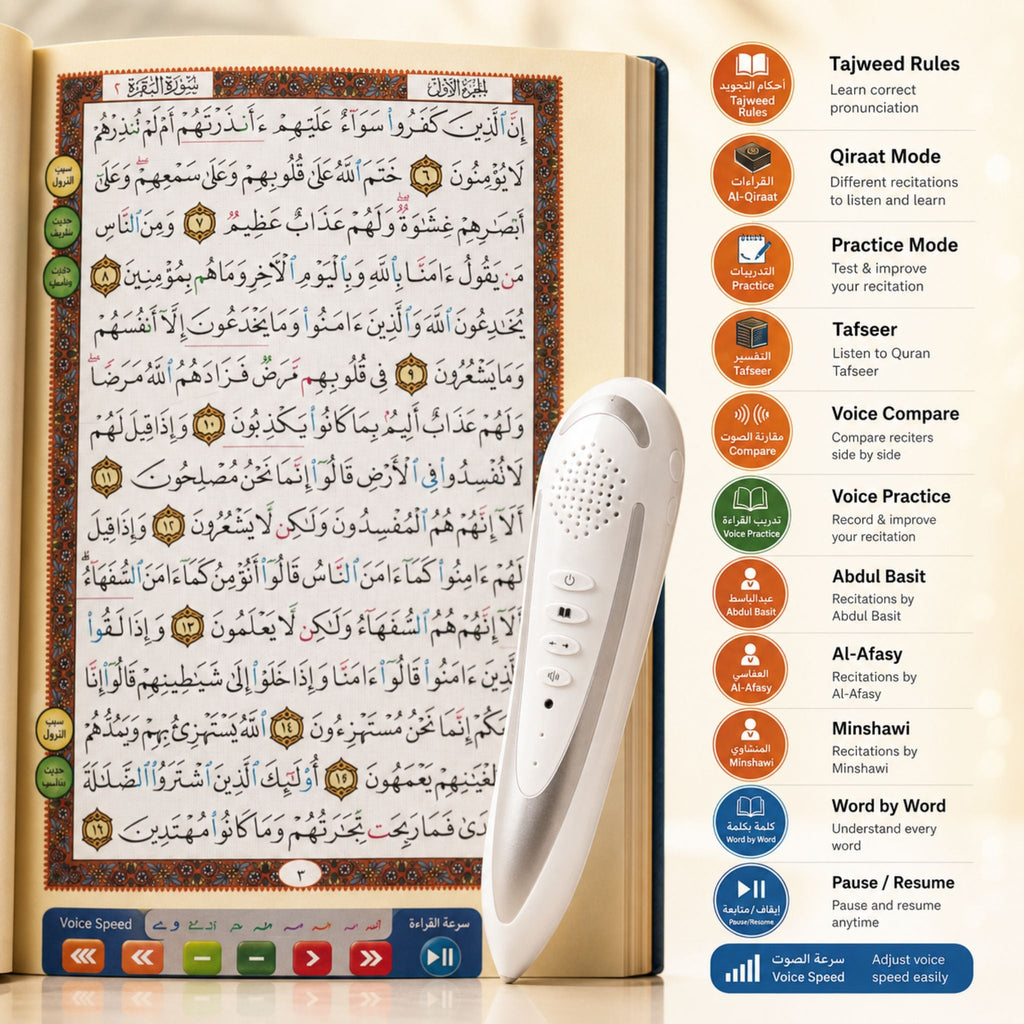 سُورَةُ البَقَرَةِ ٢
الجزء الأول
إِنَّ ٱلَّذِينَ كَفَرُوا۟ سَوَآءٌ عَلَيْهِمْ ءَأَنذَرْتَهُمْ أَمْ لَمْ تُنذِرْهُمْ
لَا يُؤْمِنُونَ ٦ خَتَمَ ٱللَّهُ عَلَىٰ قُلُوبِهِمْ وَعَلَىٰ سَمْعِهِمْ وَعَلَىٰ
أَبْصَٰرِهِمْ غِشَٰوَةٌ وَلَهُمْ عَذَابٌ عَظِيمٌ ٧ وَمِنَ ٱلنَّاسِ
مَن يَقُولُ ءَامَنَّا بِٱللَّهِ وَبِٱلْيَوْمِ ٱلْأَخِرِ وَمَا هُم بِمُؤْمِنِينَ ٨
يُخَٰدِعُونَ ٱللَّهَ وَٱلَّذِينَ ءَامَنُوا۟ وَمَا يَخْدَعُونَ إِلَّآ أَنفُسَهُمْ
وَمَا يَشْعُرُونَ ٩ فِى قُلُوبِهِم مَّرَضٌ فَزَادَهُمُ ٱللَّهُ مَرَضًا
وَلَهُمْ عَذَابٌ أَلِيمٌ بِمَا كَانُوا۟ يَكْذِبُونَ ١٠ وَإِذَا قِيلَ لَهُمْ
لَا تُفْسِدُوا۟ فِى ٱلْأَرْضِ قَالُوٓا۟ إِنَّمَا نَحْنُ مُصْلِحُونَ ١١
أَلَآ إِنَّهُمْ هُمُ ٱلْمُفْسِدُونَ وَلَٰكِن لَّا يَشْعُرُونَ ١٢ وَإِذَا قِيلَ
لَهُمْ ءَامِنُوا۟ كَمَآ ءَامَنَ ٱلنَّاسُ قَالُوٓا۟ أَنُؤْمِنُ كَمَآ ءَامَنَ ٱلسُّفَهَآءُ
أَلَآ إِنَّهُمْ هُمُ ٱلسُّفَهَآءُ وَلَٰكِن لَّا يَعْلَمُونَ ١٣ وَإِذَا لَقُوا۟
ٱلَّذِينَ ءَامَنُوا۟ قَالُوٓا۟ ءَامَنَّا وَإِذَا خَلَوْا۟ إِلَىٰ شَيَٰطِينِهِمْ قَالُوٓا۟ إِنَّا
إِنَّمَا نَحْنُ مُسْتَهْزِءُونَ ١٤ ٱللَّهُ يَسْتَهْزِئُ بِهِمْ وَيَمُدُّهُمْ
يَعْمَهُونَ ١٥ أُو۟لَٰٓئِكَ ٱلَّذِينَ ٱشْتَرَوُا۟ ٱلضَّلَٰلَةَ
فَمَا رَبِحَت تِّجَٰرَتُهُمْ وَمَا كَانُوا۟ مُهْتَدِينَ ١٦
٣
سبب
النزول
حديث
شريف
سبب
النزول
حديث
Voice Speed
سرعة القراءة
أحكام التجويد
Tajweed
Rules
Tajweed Rules
Learn correct
pronunciation
القراءات
Al-Qiraat
Qiraat Mode
Different recitations
to listen and learn
التدريبات
Practice
Practice Mode
Test & improve
your recitation
التفسير
Tafseer
Tafseer
Listen to Quran
Tafseer
مقارنة الصوت
Compare
Voice Compare
Compare reciters
side by side
تدريب القراءة
Voice Practice
Voice Practice
Record & improve
your recitation
عبدالباسط
Abdul Basit
Abdul Basit
Recitations by
Abdul Basit
العفاسي
Al-Afasy
Al-Afasy
Recitations by
Al-Afasy
المنشاوي
Minshawi
Minshawi
Recitations by
Minshawi
كلمة بكلمة
Word by Word
Word by Word
Understand every
word
إيقاف / متابعة
Pause/Resume
Pause / Resume
Pause and resume
anytime
سرعة الصوت
Voice Speed
Adjust voice
speed easily